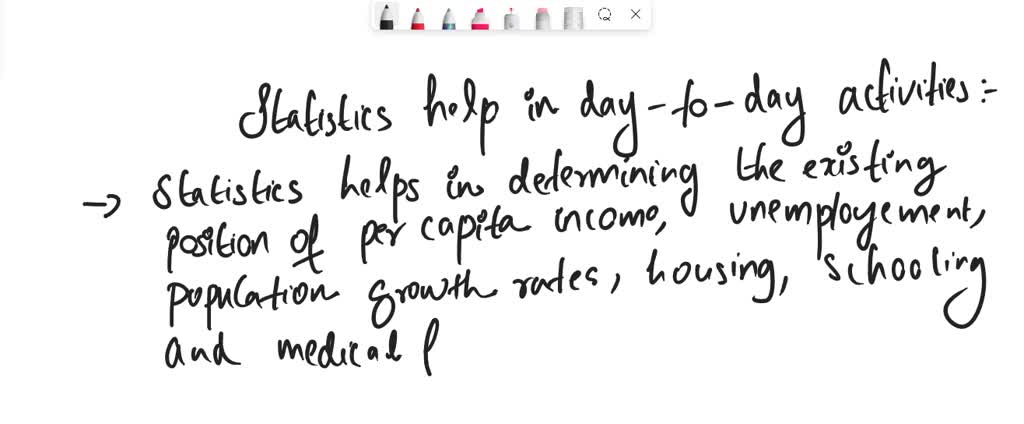 Statistics help in day-to-day activities:-
→ Statistics helps in determining the existing
position of per capita income, unemployement,
population growth rates, housing, schooling
and medical f